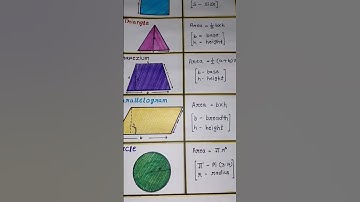 [a - side]
Triangle
Area = ½ bxh
[b - base
h - height]
Area = ½ (a+b)
[b - base
h - height]
Parallelogram
Area = bxh
[b - breadth
h - height]
Area = πr²
[π - Pi
r - radius]